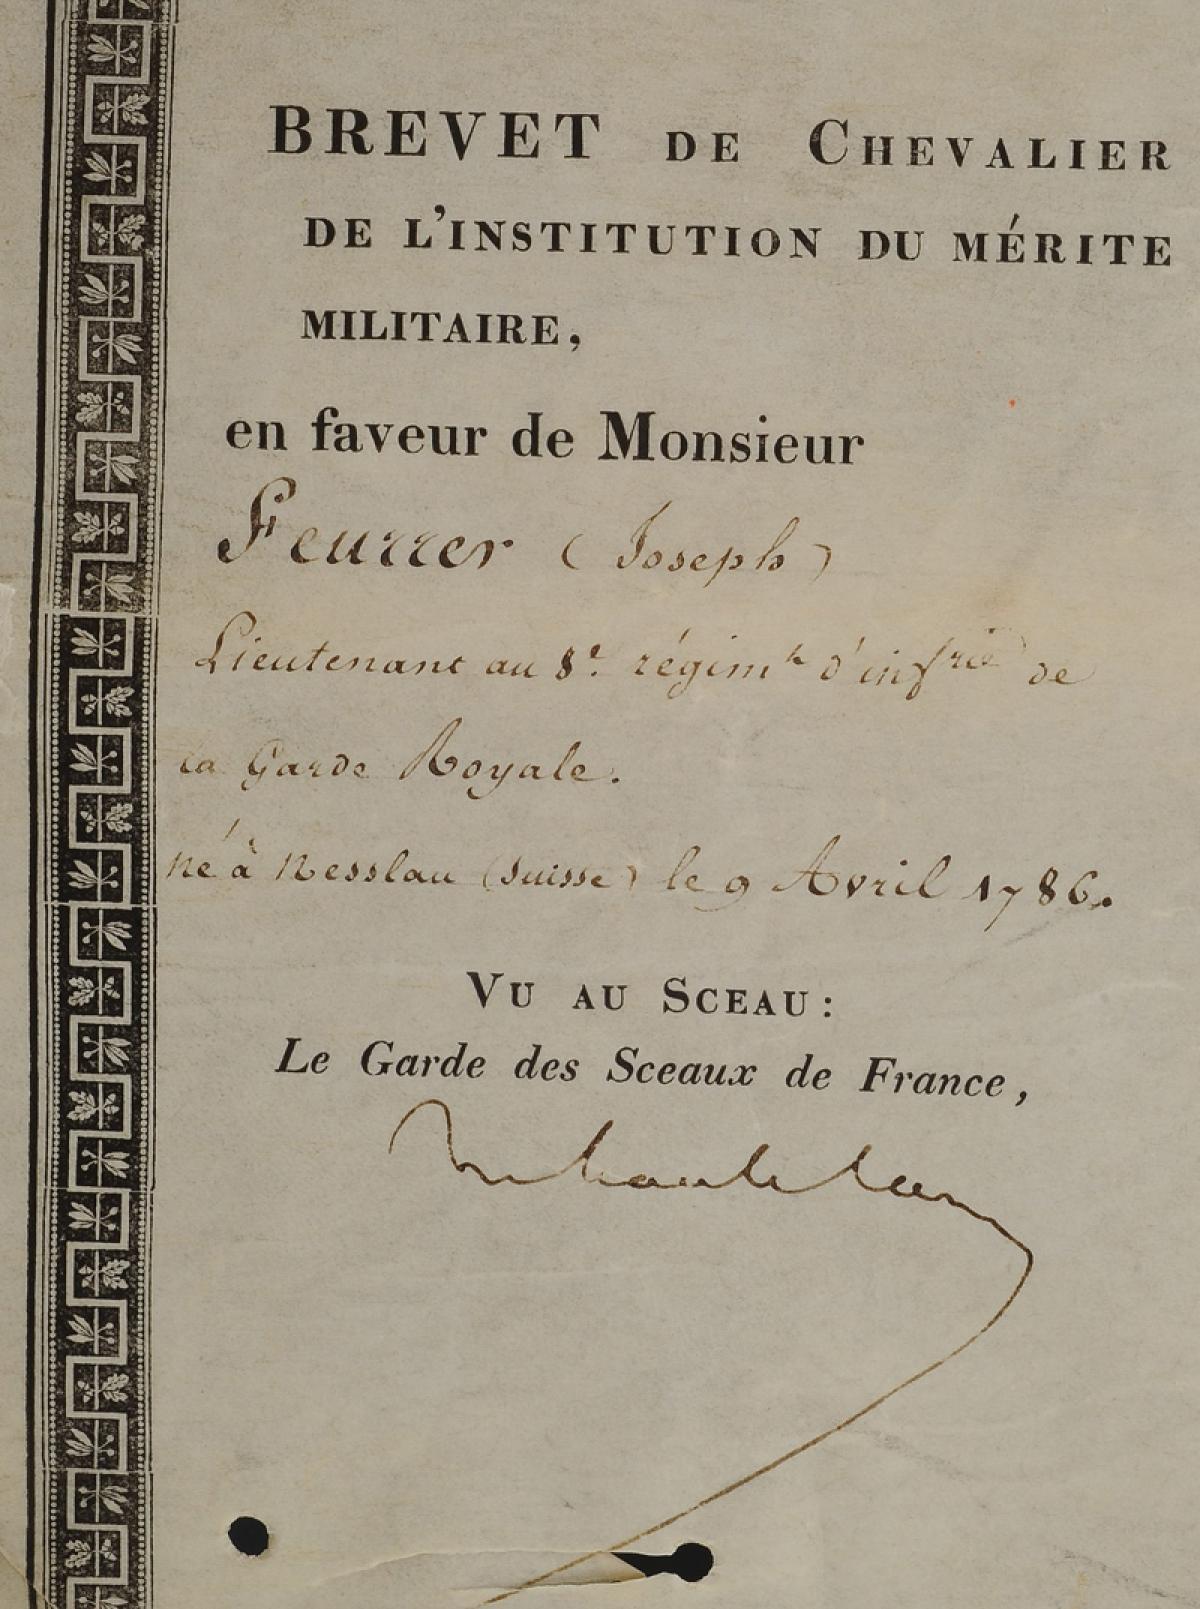 BREVET DE CHEVALIER
DE L'INSTITUTION DU MÉRITE
MILITAIRE,
en faveur de Monsieur
Feurrer (Joseph)
Lieutenant au 8e. régimt d'infrie de
la Garde Royale.
né à Nesslau (Suisse) le 9 Avril 1786.
VU AU SCEAU:
Le Garde des Sceaux de France,